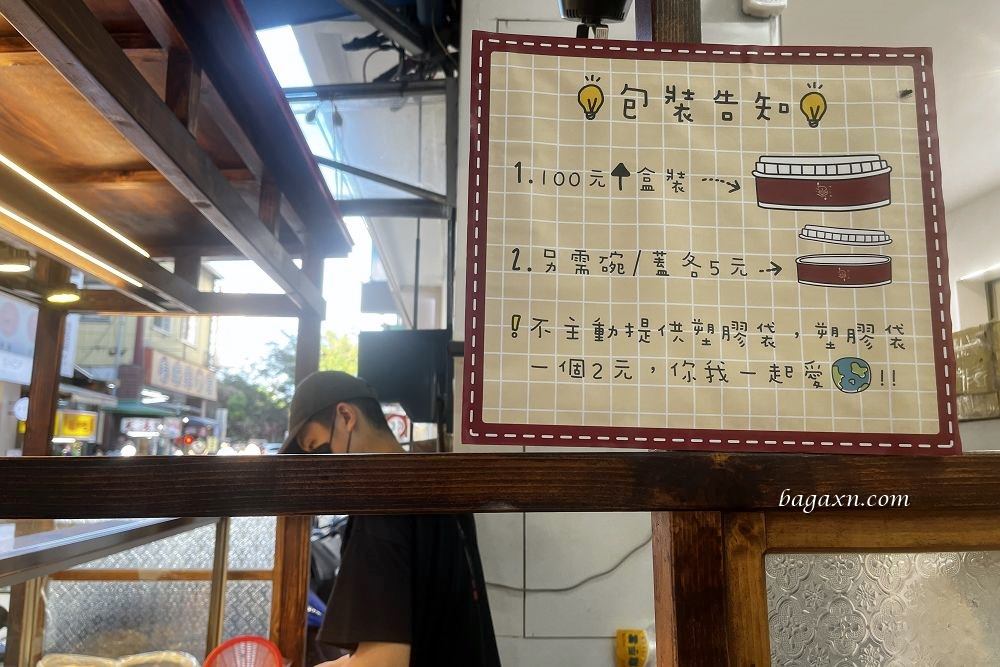 包裝告知
1.100元↑盒裝
2.另需碗/蓋各5元
!不主動提供塑膠袋，塑膠袋
一個2元，你我一起愛!!
bagaxn.com